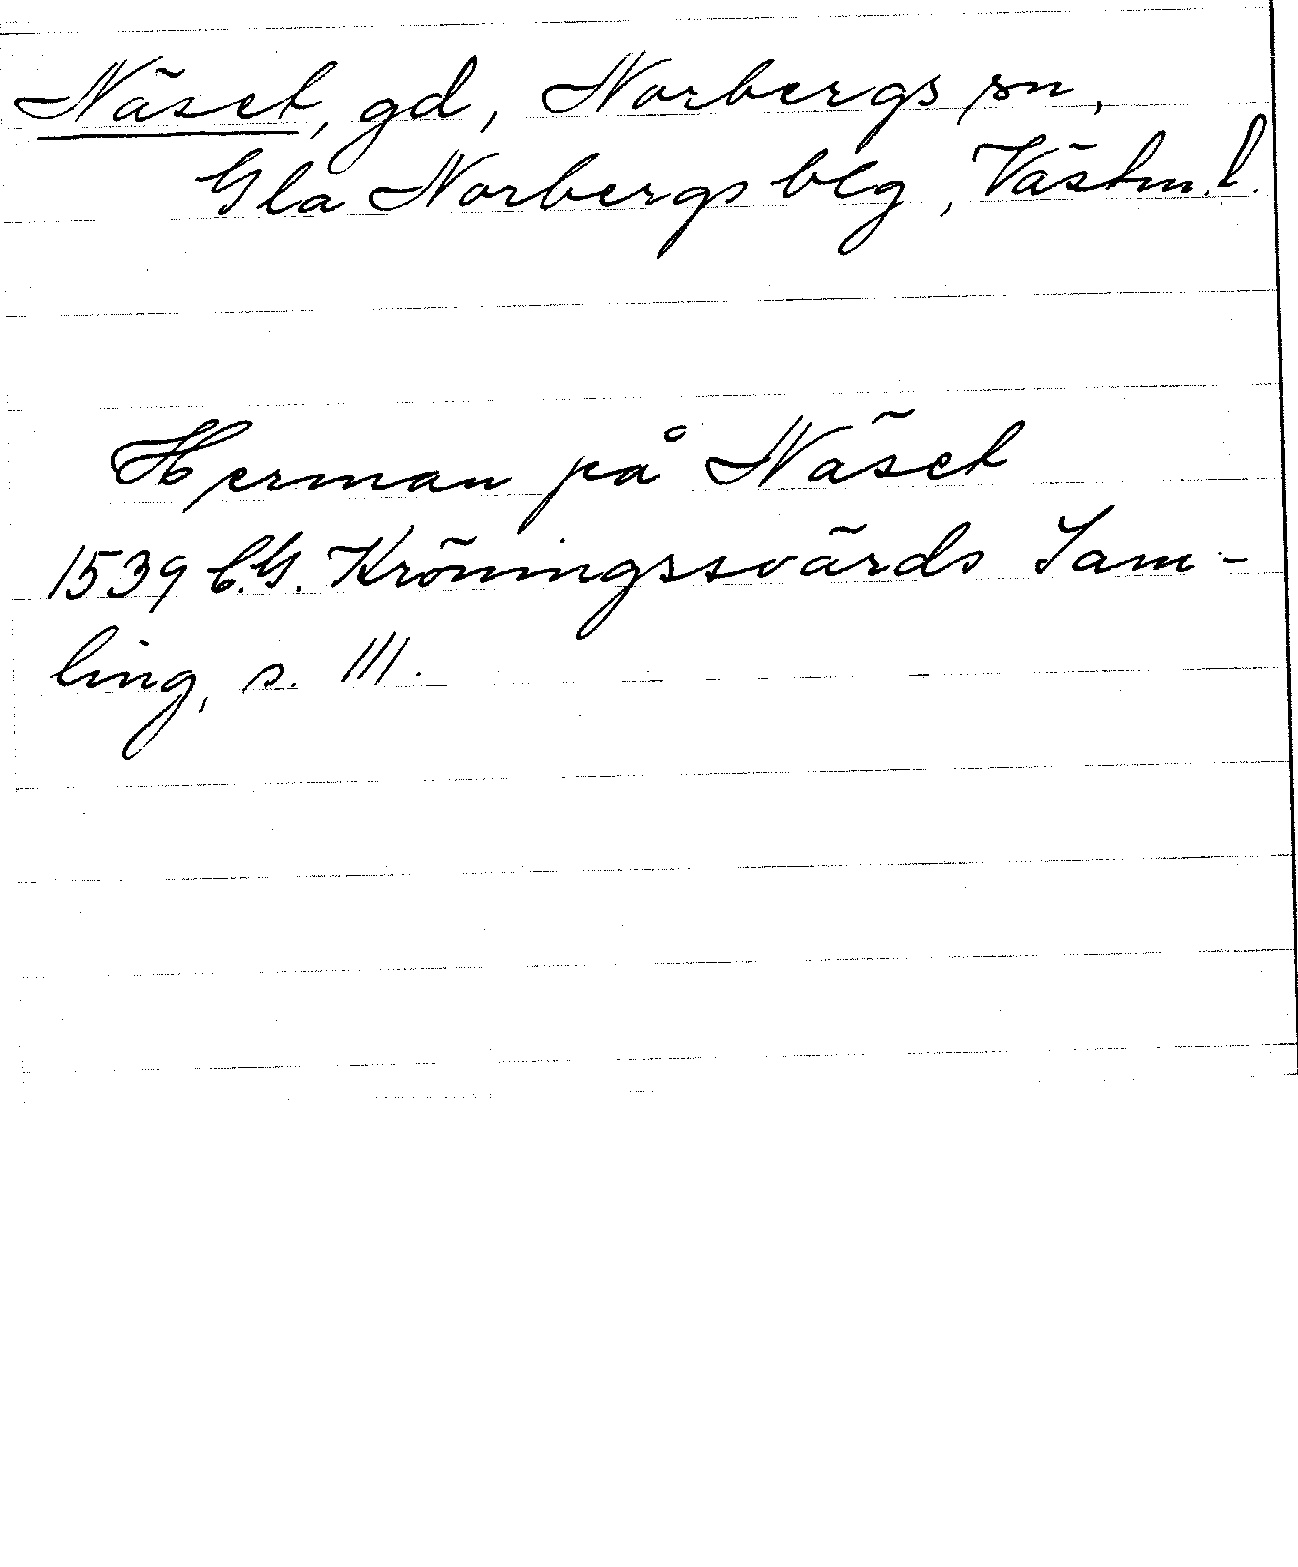 Näset, gd, Norbergs sn,
Gla Norbergs blg, Västm. l.
Herman på Näset
1539 C.G. Kröningssvärds Sam-
ling, s. 111.